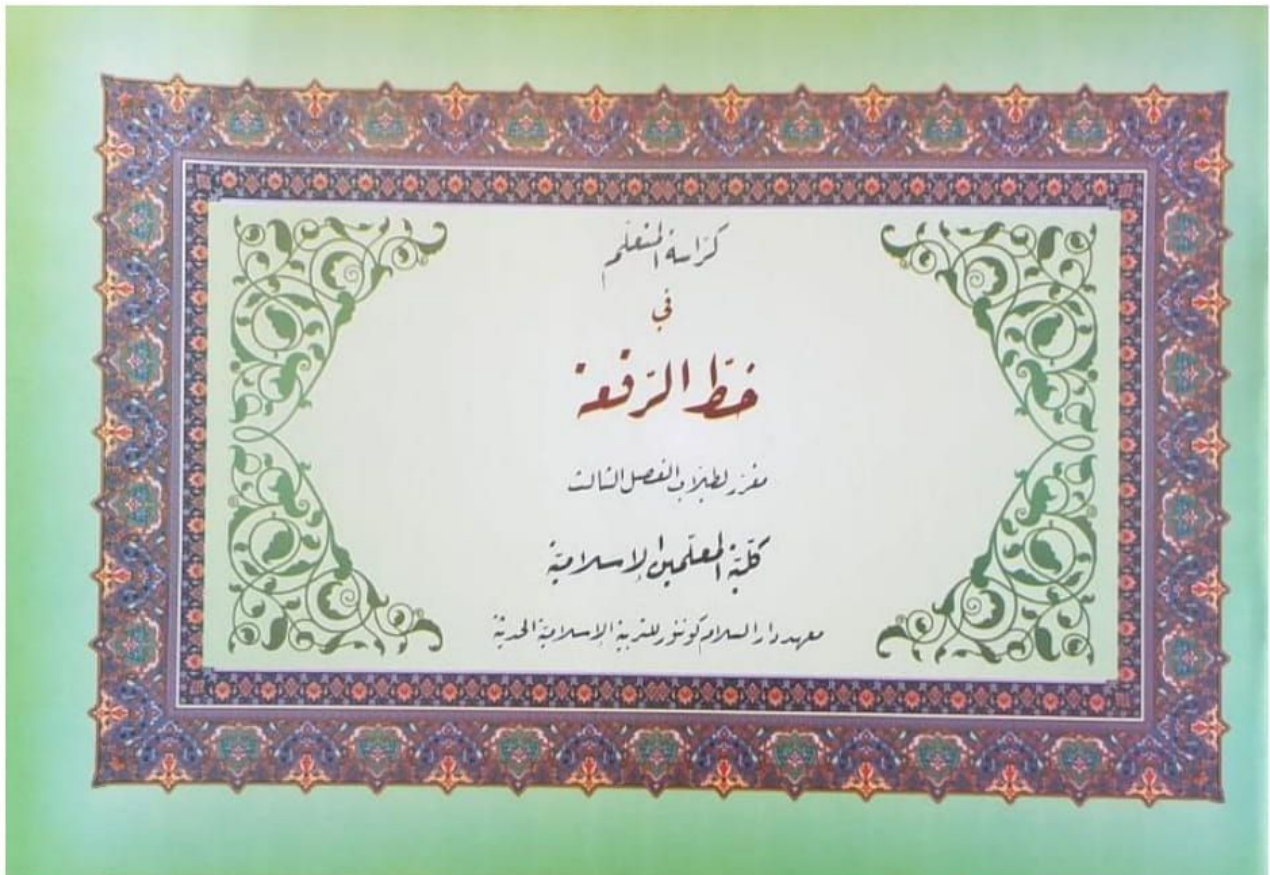 كرّاسة المتعلّم
في
خطّ الرّقعة
مقرر لطلاب الفصل الثالث
كلّيّة المعلّمين الإسلاميّة
معهد دار السلام كونتور للتربية الإسلامية الحديثة